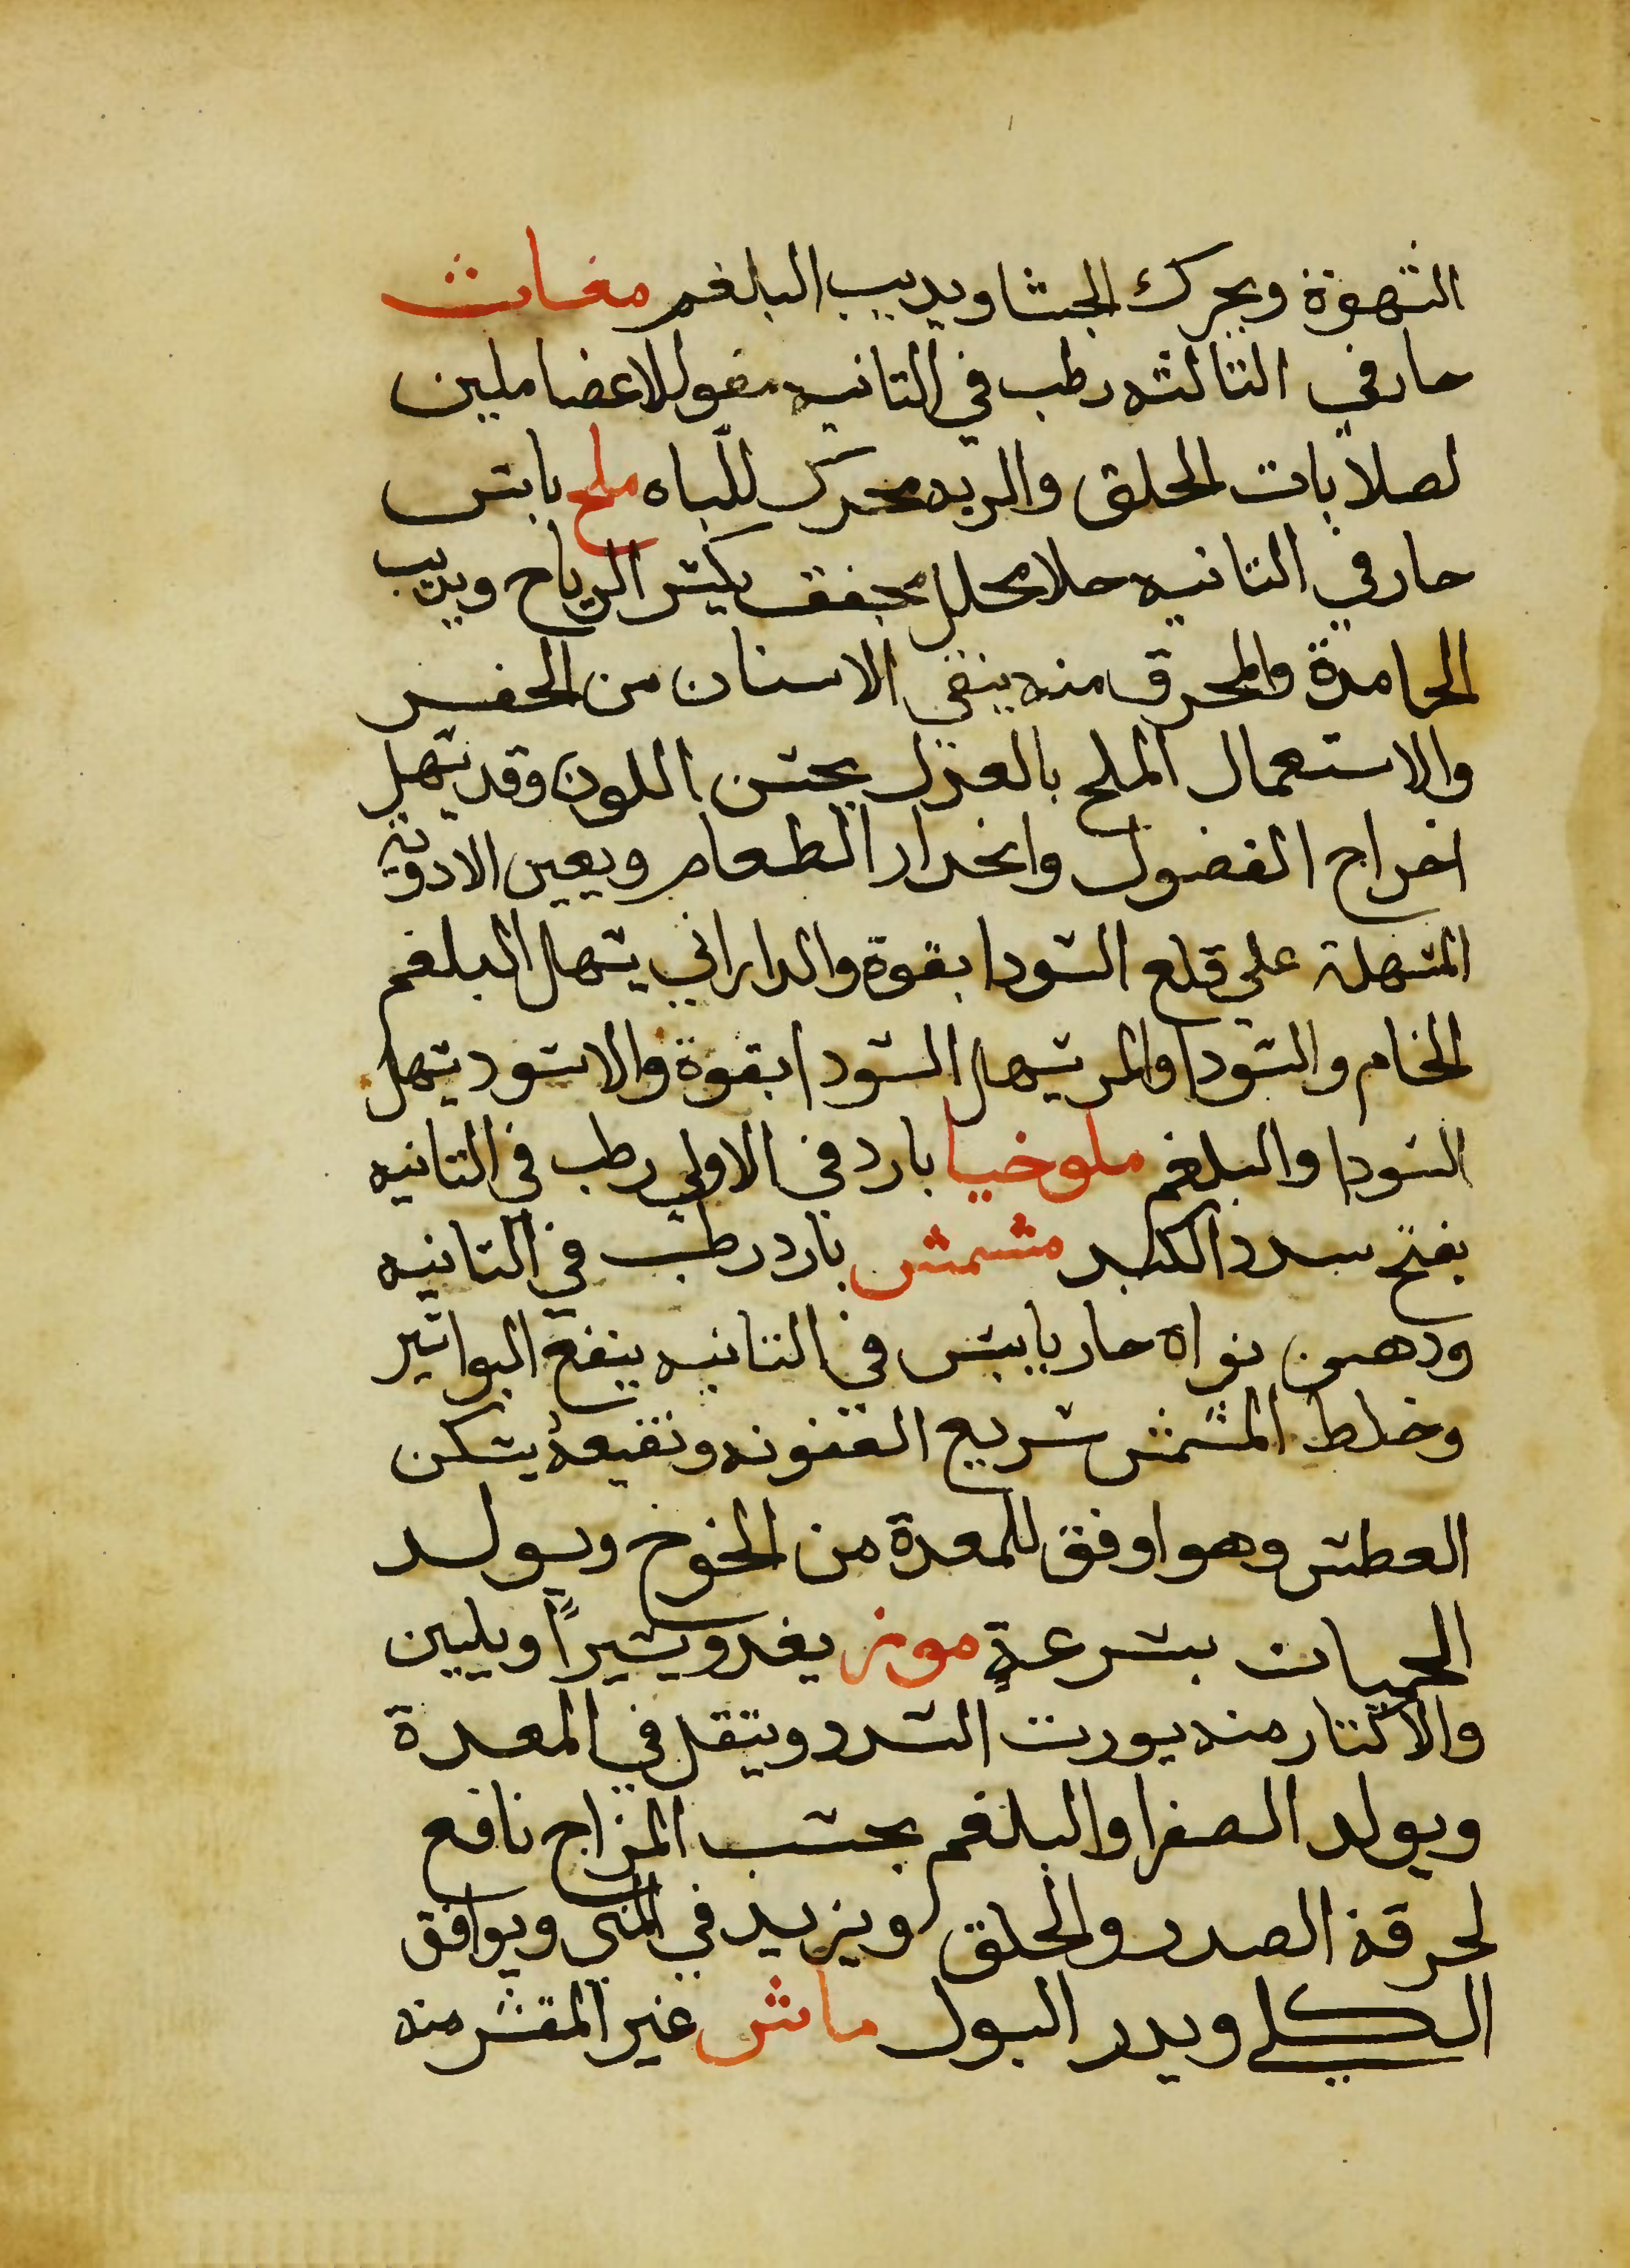 الشهوة ويحرك الجشا ويديب البلغم مغاث
حار في الثالثه رطب في الثانيه مقو للاعضا ملين
لصلابات الحلق والريه محرك للباه ملح يابس
حار في الثانيه جلا محلل مجفف يكسر الرياح ويديب
الجامدة والمحرق منه ينقي الاسنان من الحفر
والاستعمال الملح بالعدل يحسن اللون وقد يسهل
اخراج الفضول وانحدار الطعام ويعين الادوية
المسهلة علي قلع السودا بقوة والداراني يسهل البلغم
الخام والسودا والمر يسهل السودا بقوة والاسود يسهل
السودا والبلغم ملوخيا بارد في الاولي رطب في الثانيه
يفتح سدد الكبد مشمش بارد رطب في الثانيه
ودهن نواه حار يابس في الثانيه ينفع البواسير
وخلط المشمش سريع العفونه ونقيعه يسكن
العطش وهو اوفق للمعدة من الخوخ ويولد
الحميات بسرعةٍ موز يغدو يسيراً ويلين
والاكثار منه يورث السدد ويثقل في المعدة
ويولد الصفرا والبلغم بحسب المزاج نافع
لحرقة الصدر والحلق ويزيد في المني ويوافق
الكلي ويدر البول ماش غير المقشر منه